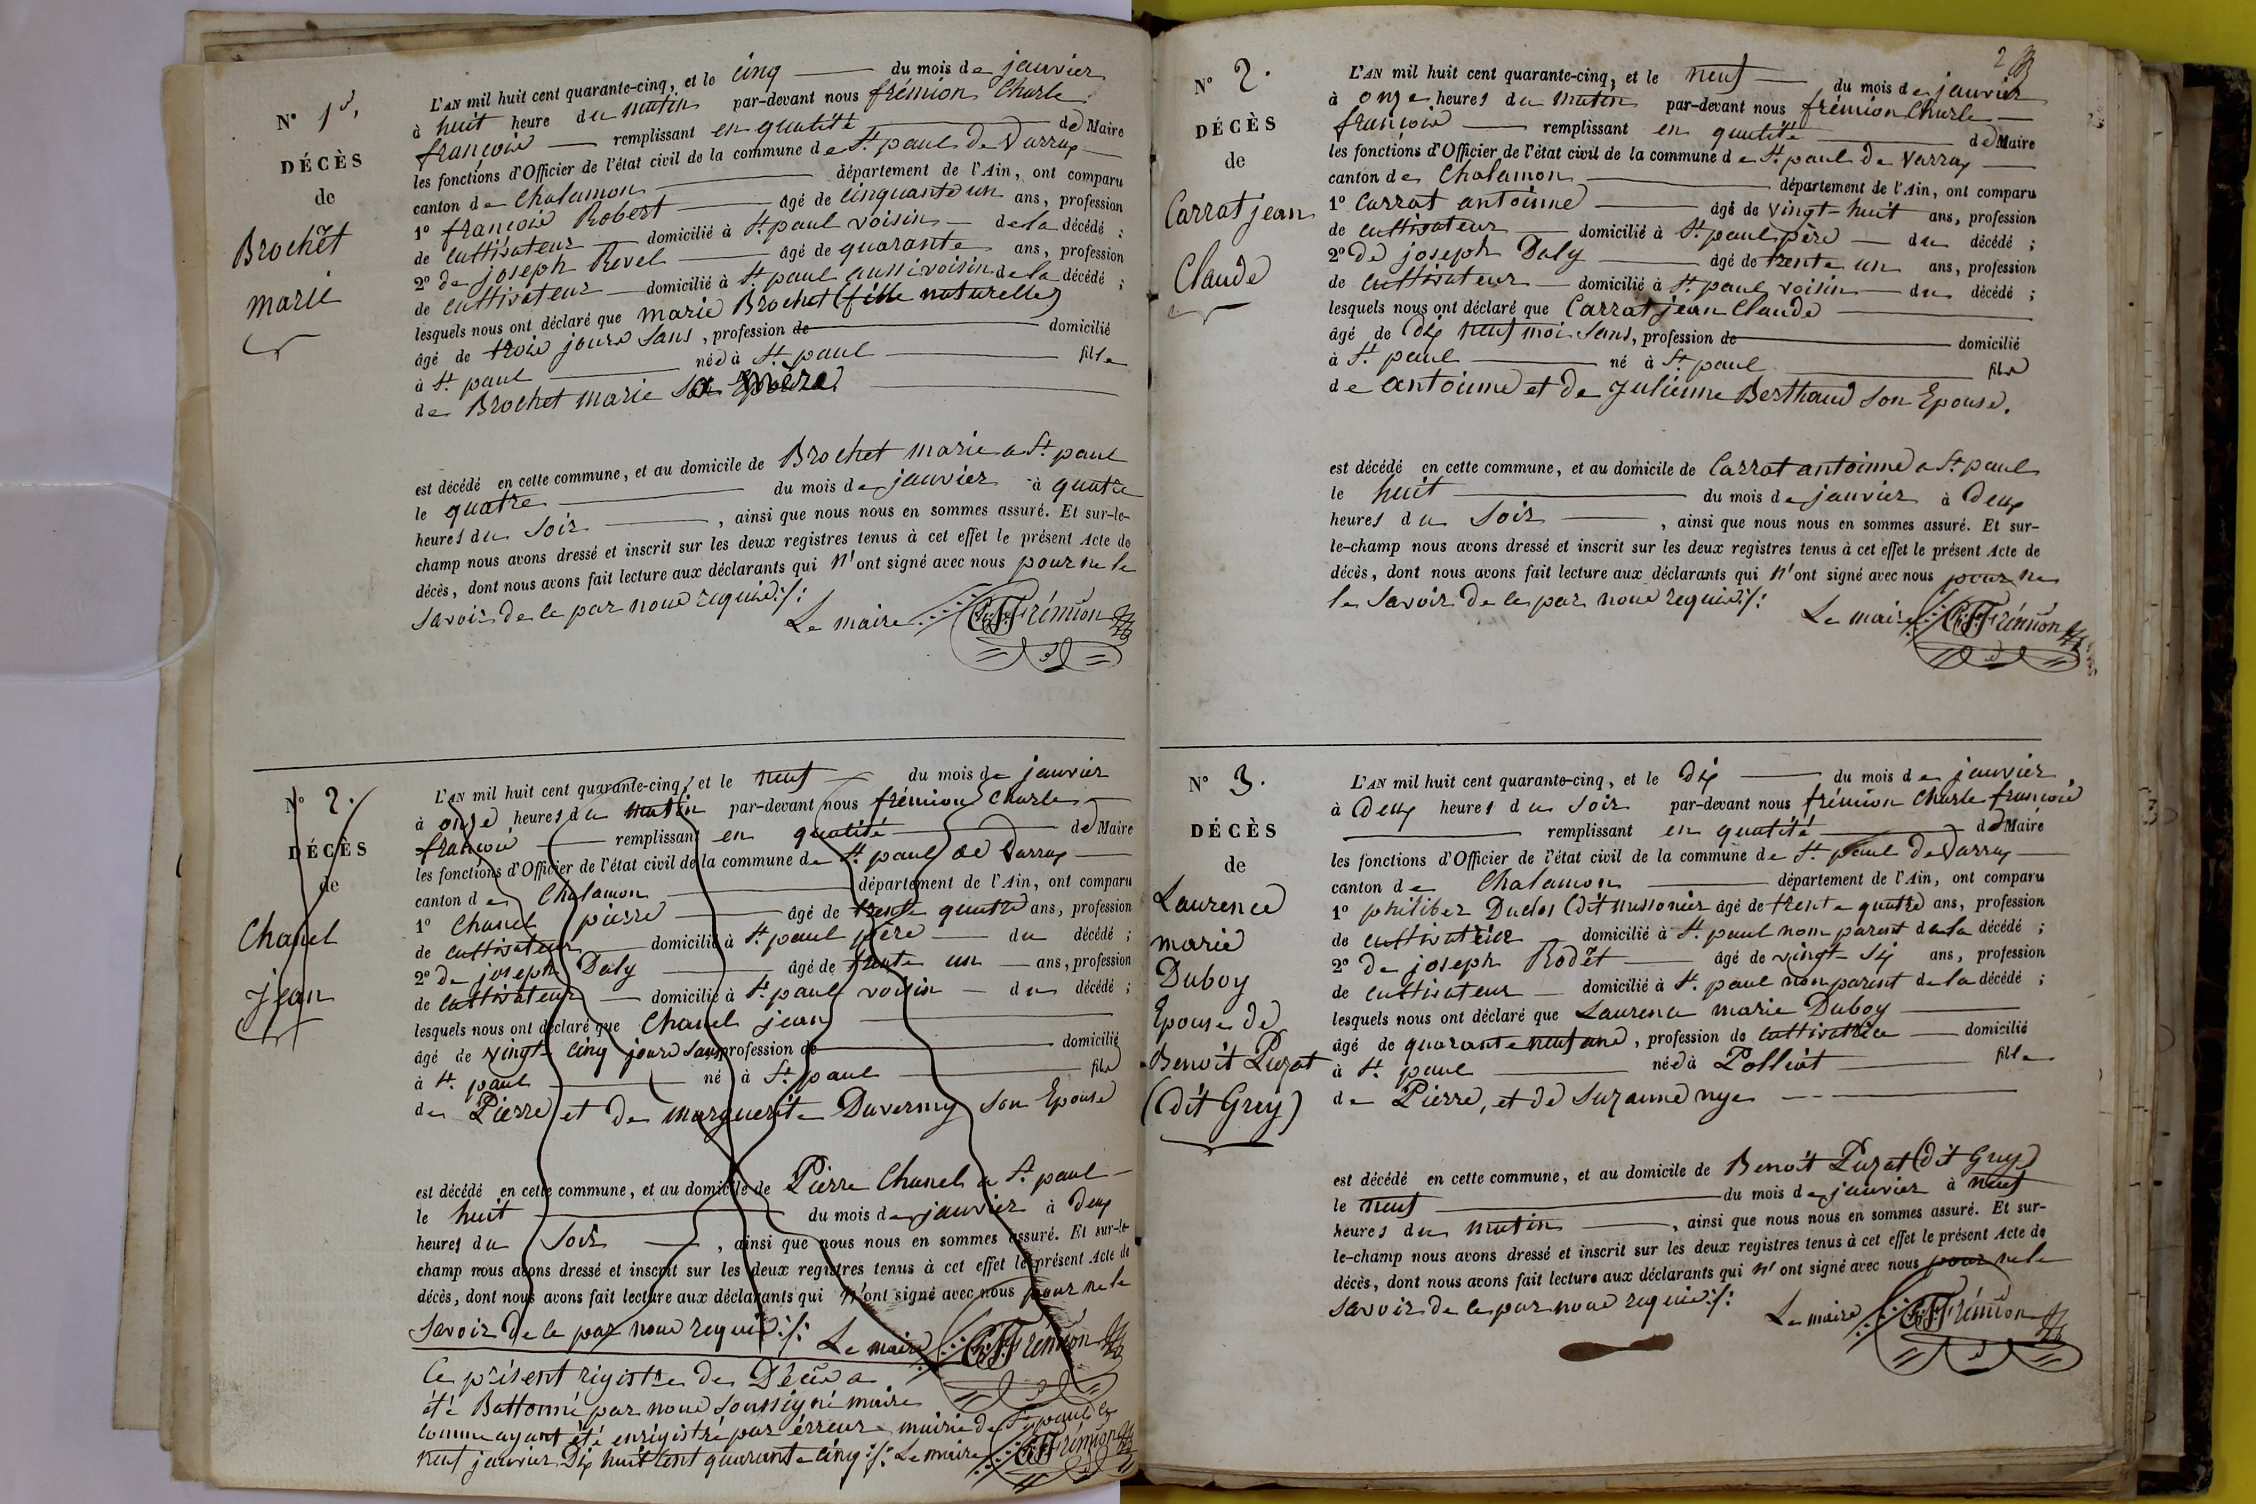 N° 1er.
DÉCÈS
de
Brochet
marie
L'AN mil huit cent quarante-cinq, et le cinq du mois de janvier
à huit heure du matin par-devant nous frémion Charle
françois remplissant en qualité de Maire
les fonctions d'Officier de l'état civil de la commune de St. paul de Varrax
canton de Chalamon département de l'Ain, ont comparu
1° françois Robert âgé de cinquante un ans, profession
de cultivateur domicilié à St. paul voisin de la décédé ;
2° de joseph Revel âgé de quarante ans, profession
de cultivateur domicilié à St. paul aussi voisin de la décédé ;
lesquels nous ont déclaré que marie Brochet (fille naturelle)
âgé de trois jours sans, profession de domicilié
à St. paul née à St. paul fille
de Brochet marie sa mère
est décédé en cette commune, et au domicile de Brochet marie a St. paul
le quatre du mois de janvier à quatre
heures du soir, ainsi que nous nous en sommes assuré. Et sur-le-
champ nous avons dressé et inscrit sur les deux registres tenus à cet effet le présent Acte de
décès, dont nous avons fait lecture aux déclarants qui n'ont signé avec nous pour ne le
savoir de ce par nous requis ./.
Le maire Ch. F. Frémion
N° 2.
DÉCÈS
de
Chanel
jean
L'AN mil huit cent quarante-cinq, et le neuf du mois de janvier
à onze heures du matin par-devant nous frémion Charle
françois remplissant en qualité de Maire
les fonctions d'Officier de l'état civil de la commune de St. paul de Varrax
canton de Chalamon département de l'Ain, ont comparu
1° Chanel pierre âgé de trente quatre ans, profession
de cultivateur domicilié à St. paul père du décédé ;
2° de joseph Daly âgé de trente un ans, profession
de cultivateur domicilié à St. paul voisin du décédé ;
lesquels nous ont déclaré que Chanel jean
âgé de vingt-cinq jours sans profession de domicilié
à St. paul né à St. paul fils
de Pierre et de marguerite Duvernay son Epouse
est décédé en cette commune, et au domicile de Pierre Chanel a St. paul
le huit du mois de janvier à deux
heures du soir, ainsi que nous nous en sommes assuré. Et sur-le-
champ nous avons dressé et inscrit sur les deux registres tenus à cet effet le présent Acte de
décès, dont nous avons fait lecture aux déclarants qui n'ont signé avec nous pour ne le
savoir de ce par nous requis ./. Le maire Ch. F. Frémion
Ce présent rigistre de Décès a
été Battonné par nous soussigné maire
comme ayant été enrigistré par érreure mairie de St. paul le
neuf janvier Dix huit cent quarante cinq ./. Le maire Ch. F. Frémion
2
N° 2.
DÉCÈS
de
Carrat jean
Claude
L'AN mil huit cent quarante-cinq, et le neuf du mois de janvier
à onze heures du matin par-devant nous frémion Charle
françois remplissant en qualité de Maire
les fonctions d'Officier de l'état civil de la commune de St. paul de Varrax
canton de Chalamon département de l'Ain, ont comparu
1° Carrat antoinne âgé de vingt-huit ans, profession
de cultivateur domicilié à St. paul père du décédé ;
2° de joseph Daly âgé de trente un ans, profession
de cultivateur domicilié à St. paul voisin du décédé ;
lesquels nous ont déclaré que Carrat jean Claude
âgé de dix neuf moi sans, profession de domicilié
à St. paul né à St. paul fils
de antoinne et de Julienne Berthaud son Epouse.
est décédé en cette commune, et au domicile de Carrat antoinne a St. paul
le huit du mois de janvier à deux
heures du soir, ainsi que nous nous en sommes assuré. Et sur-
le-champ nous avons dressé et inscrit sur les deux registres tenus à cet effet le présent Acte de
décès, dont nous avons fait lecture aux déclarants qui n'ont signé avec nous pour ne
le savoir de ce par nous requis ./.
Le maire Ch. F. Frémion
N° 3.
DÉCÈS
de
Laurence
marie
Duboy
Epouse de
Benoit Puzat
(dit Grey)
L'AN mil huit cent quarante-cinq, et le dix du mois de janvier,
à deux heures du soir par-devant nous frémion Charle françois
remplissant en qualité de Maire
les fonctions d'Officier de l'état civil de la commune de St. paul de Varrax
canton de Chalamon département de l'Ain, ont comparu
1° philiber Duclos (dit mussonier âgé de trente quatre ans, profession
de cultivateur domicilié à St. paul non parent de la décédé ;
2° de joseph Rodet âgé de vingt-six ans, profession
de cultivateur domicilié à St. paul non parent de la décédé ;
lesquels nous ont déclaré que Laurence marie Duboy
âgé de quarante neuf ans, profession de cultivatrice domicilié
à St. paul née à Polliat fille
de Pierre, et de Suzanne nye
est décédé en cette commune, et au domicile de Benoit Puzat (dit Grey)
le neuf du mois de janvier à neuf
heures du matin, ainsi que nous nous en sommes assuré. Et sur-
le-champ nous avons dressé et inscrit sur les deux registres tenus à cet effet le présent Acte de
décès, dont nous avons fait lecture aux déclarants qui n'ont signé avec nous pour ne le
savoir de ce par nous requis ./.
Le maire Ch. F. Frémion